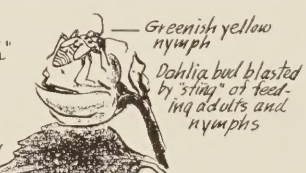 "
Greenish yellow
nymph
Dahlia bud blasted
by "sting" of feed-
ing adults and
nymphs